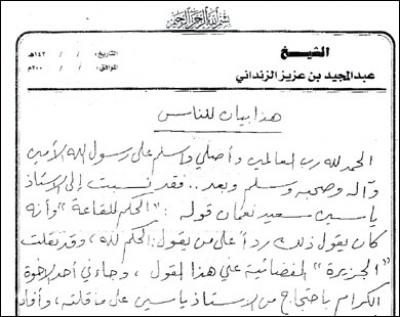 بسم الله الرحمن الرحيم
الشيخ
عبدالمجيد بن عزيز الزنداني
التاريخ: / / ١٤٢هـ
الموافق: / / ٢٠٠م
هذا بيان للناس
الحمد لله رب العالمين وأصلي وأسلم على رسول الله الأمين
وآله وصحبه وسلم وبعد .. فقد نسبت إلى الاستاذ
ياسين سعيد نعمان قوله : "الحكم للقاعة" وأنه
كان يقول ذلك رداً على من يقول: الحكم لله ، وقد نقلت
"الجزيرة" الفضائية عني هذا القول ، وجاءني أحد الاخوة
الكرام باحتجاج من الاستاذ ياسين على ما قلته ، وأفاد